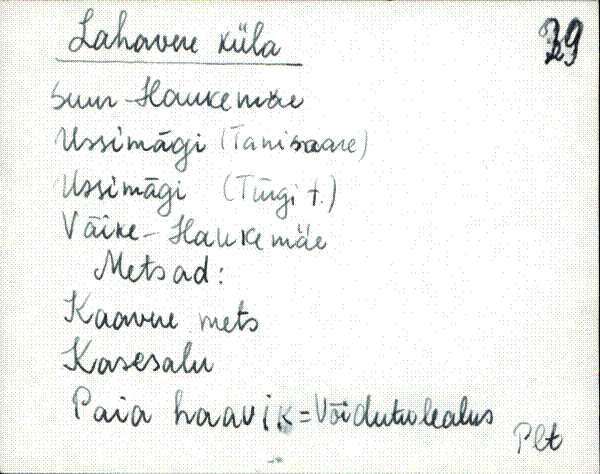 Lahavere küla
39
Suur-Haukemäe
Ussimägi (Tanisaare)
Ussimägi (Türgi t.)
Väike-Haukemäe
Metsad:
Kaavere mets
Kasesalu
Paia haavik = Võidutulealus
Plt